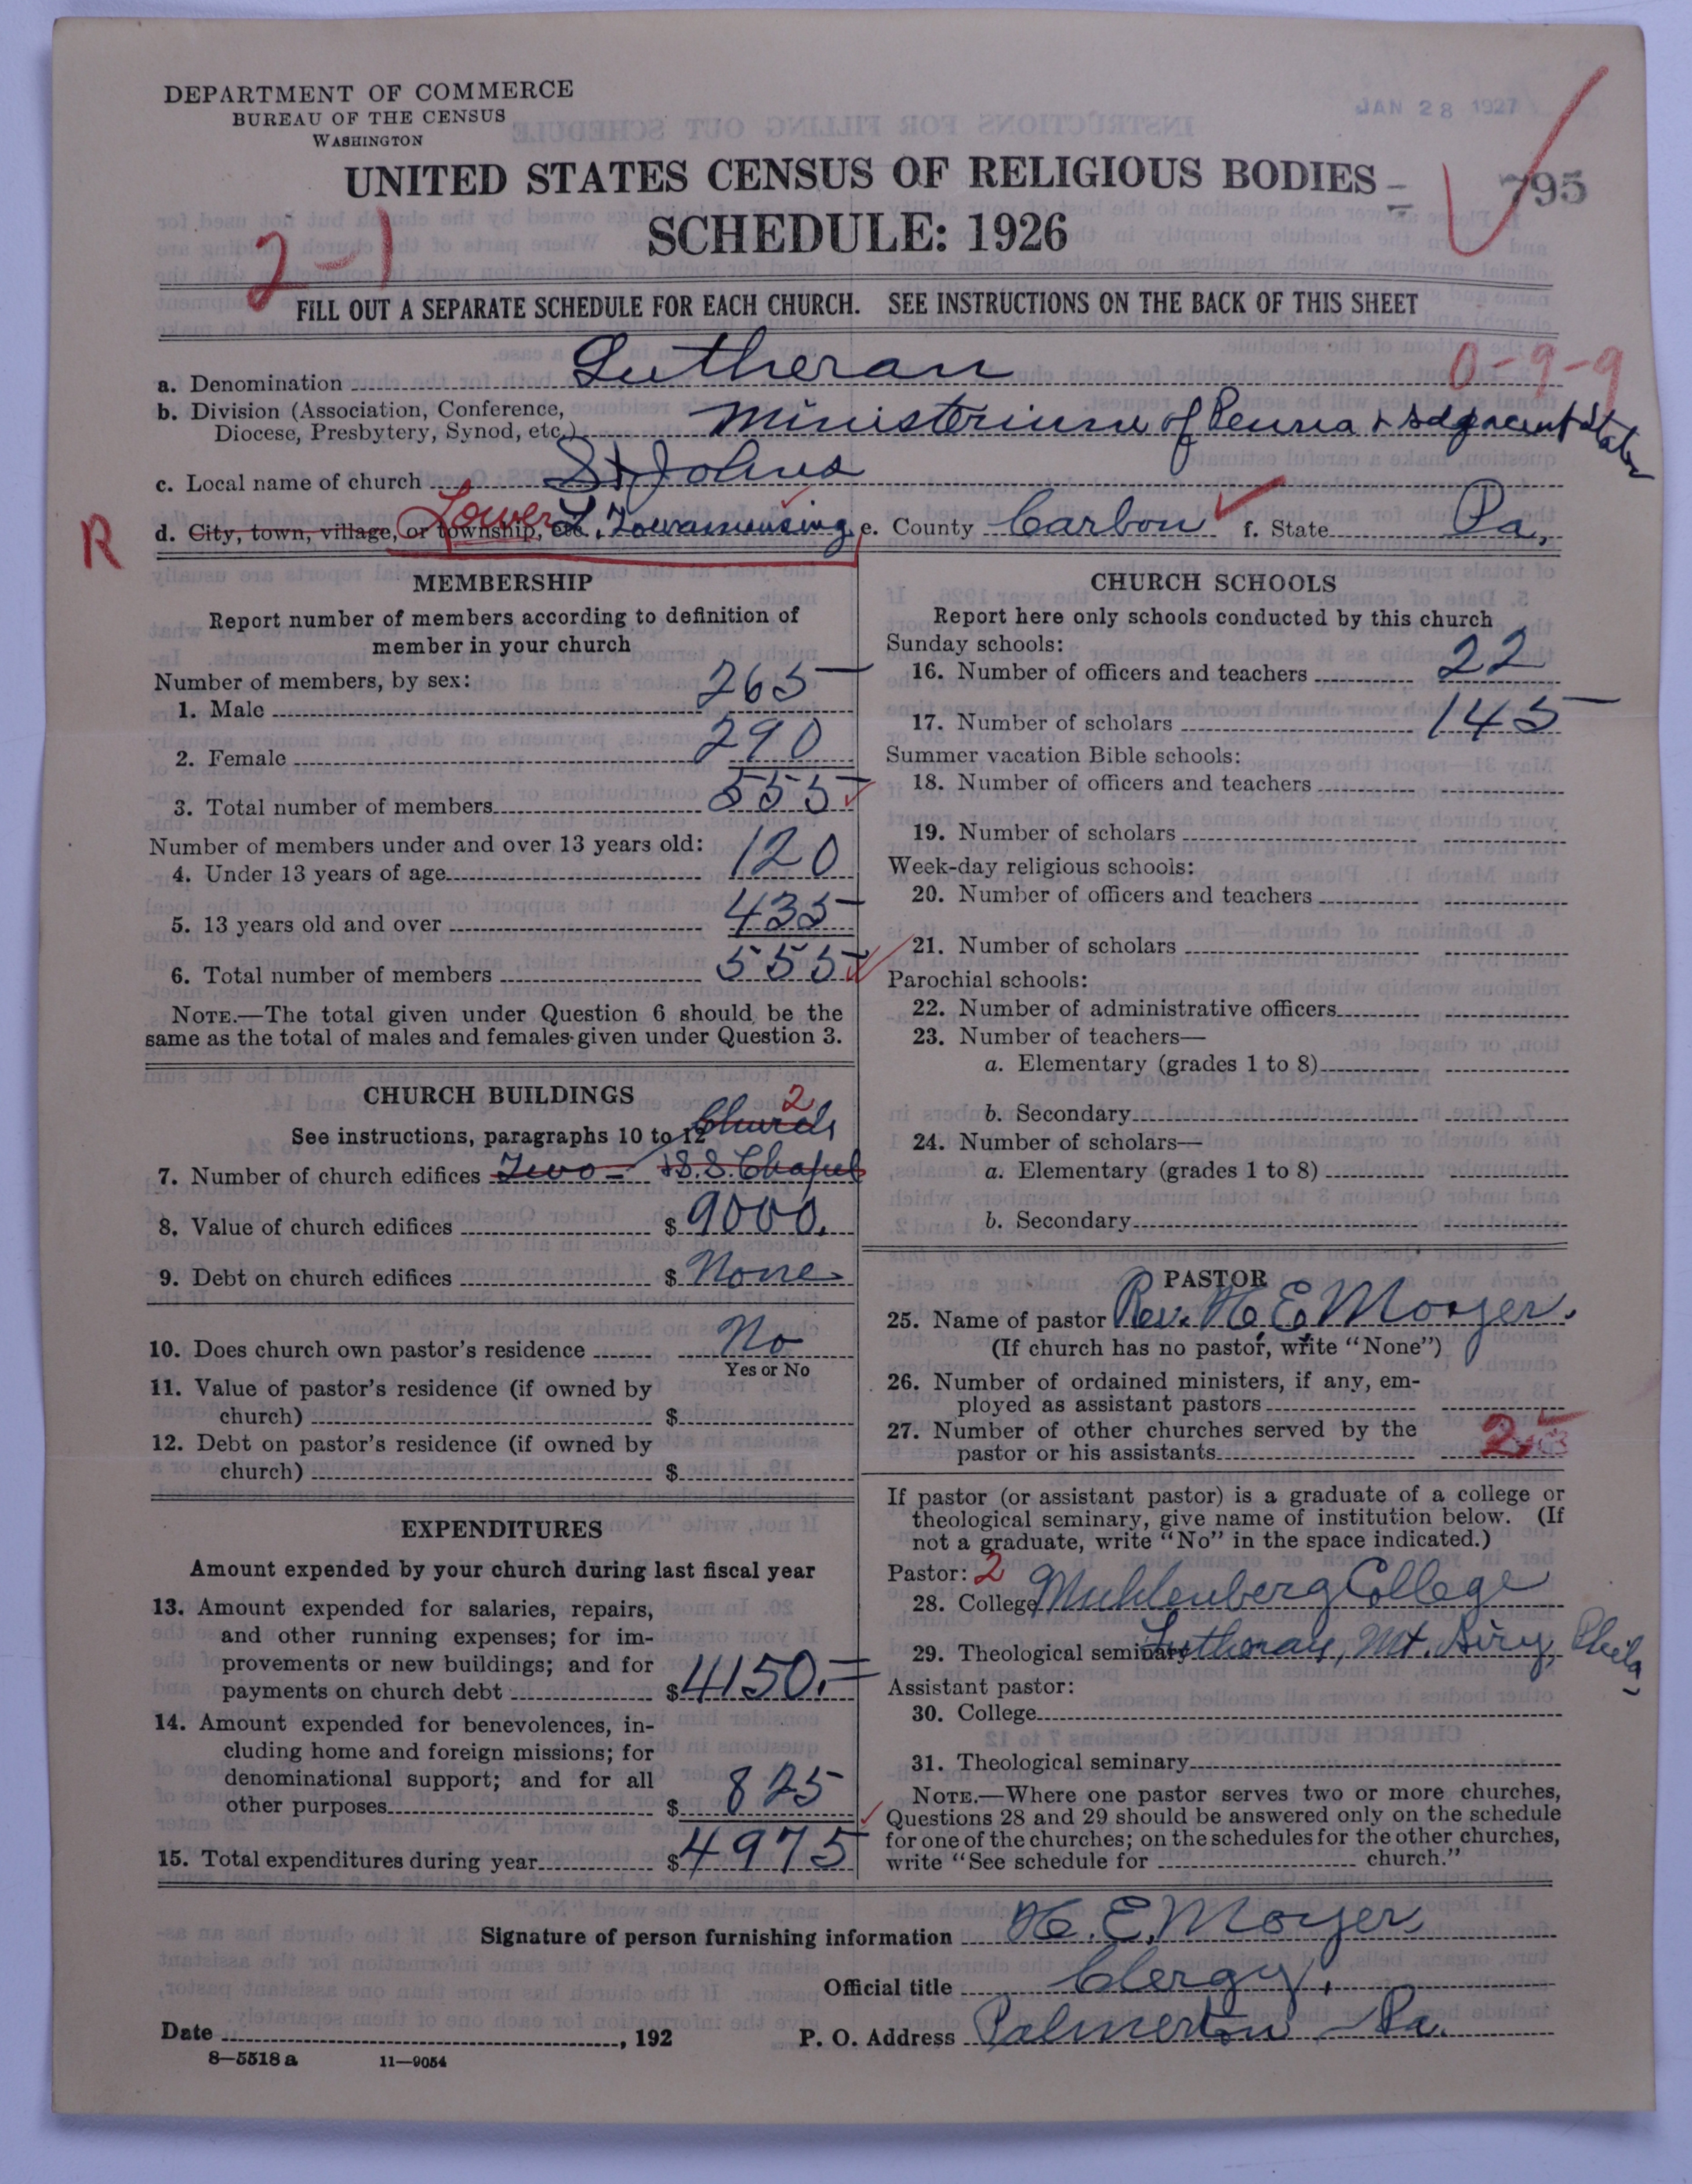 DEPARTMENT OF COMMERCE
BUREAU OF THE CENSUS
WASHINGTON
JAN 28 1927
UNITED STATES CENSUS OF RELIGIOUS BODIES
795
SCHEDULE: 1926
2-1
FILL OUT A SEPARATE SCHEDULE FOR EACH CHURCH. SEE INSTRUCTIONS ON THE BACK OF THIS SHEET
a. Denomination Lutheran 0-9-9
b. Division (Association, Conference, Diocese, Presbytery, Synod, etc.) Ministerium of Penna + adjacent States
c. Local name of church St Johns
R d. City, town, village, or township, etc. Lower L. Towamensing e. County Carbon f. State Pa.
MEMBERSHIP
Report number of members according to definition of
member in your church
Number of members, by sex:
1. Male 265
2. Female 290
3. Total number of members 555
Number of members under and over 13 years old:
4. Under 13 years of age 120
5. 13 years old and over 435
6. Total number of members 555
NOTE.—The total given under Question 6 should be the
same as the total of males and females given under Question 3.
CHURCH BUILDINGS
See instructions, paragraphs 10 to 12 Church 2
7. Number of church edifices Two — + S.S. Chapel
8. Value of church edifices $ 9000.
9. Debt on church edifices $ None
10. Does church own pastor's residence No
Yes or No
11. Value of pastor's residence (if owned by
church) $
12. Debt on pastor's residence (if owned by
church) $
EXPENDITURES
Amount expended by your church during last fiscal year
13. Amount expended for salaries, repairs,
and other running expenses; for im-
provements or new buildings; and for
payments on church debt $ 4150.
14. Amount expended for benevolences, in-
cluding home and foreign missions; for
denominational support; and for all
other purposes $ 825
15. Total expenditures during year $ 4975
CHURCH SCHOOLS
Report here only schools conducted by this church
Sunday schools:
16. Number of officers and teachers 22
17. Number of scholars 145
Summer vacation Bible schools:
18. Number of officers and teachers
19. Number of scholars
Week-day religious schools:
20. Number of officers and teachers
21. Number of scholars
Parochial schools:
22. Number of administrative officers
23. Number of teachers—
a. Elementary (grades 1 to 8)
b. Secondary
24. Number of scholars—
a. Elementary (grades 1 to 8)
b. Secondary
PASTOR
25. Name of pastor Rev. H. E. Moyer.
(If church has no pastor, write "None")
26. Number of ordained ministers, if any, em-
ployed as assistant pastors
27. Number of other churches served by the
pastor or his assistants 2
If pastor (or assistant pastor) is a graduate of a college or
theological seminary, give name of institution below. (If
not a graduate, write "No" in the space indicated.)
Pastor: 2
28. College Muhlenberg College
29. Theological seminary Lutheran, Mt. Airy, Phila.
Assistant pastor:
30. College
31. Theological seminary
NOTE.—Where one pastor serves two or more churches,
Questions 28 and 29 should be answered only on the schedule
for one of the churches; on the schedules for the other churches,
write "See schedule for church."
Signature of person furnishing information H. E. Moyer
Official title Clergy.
Date , 192 P. O. Address Palmerton Pa.
8—5518 a 11—9054